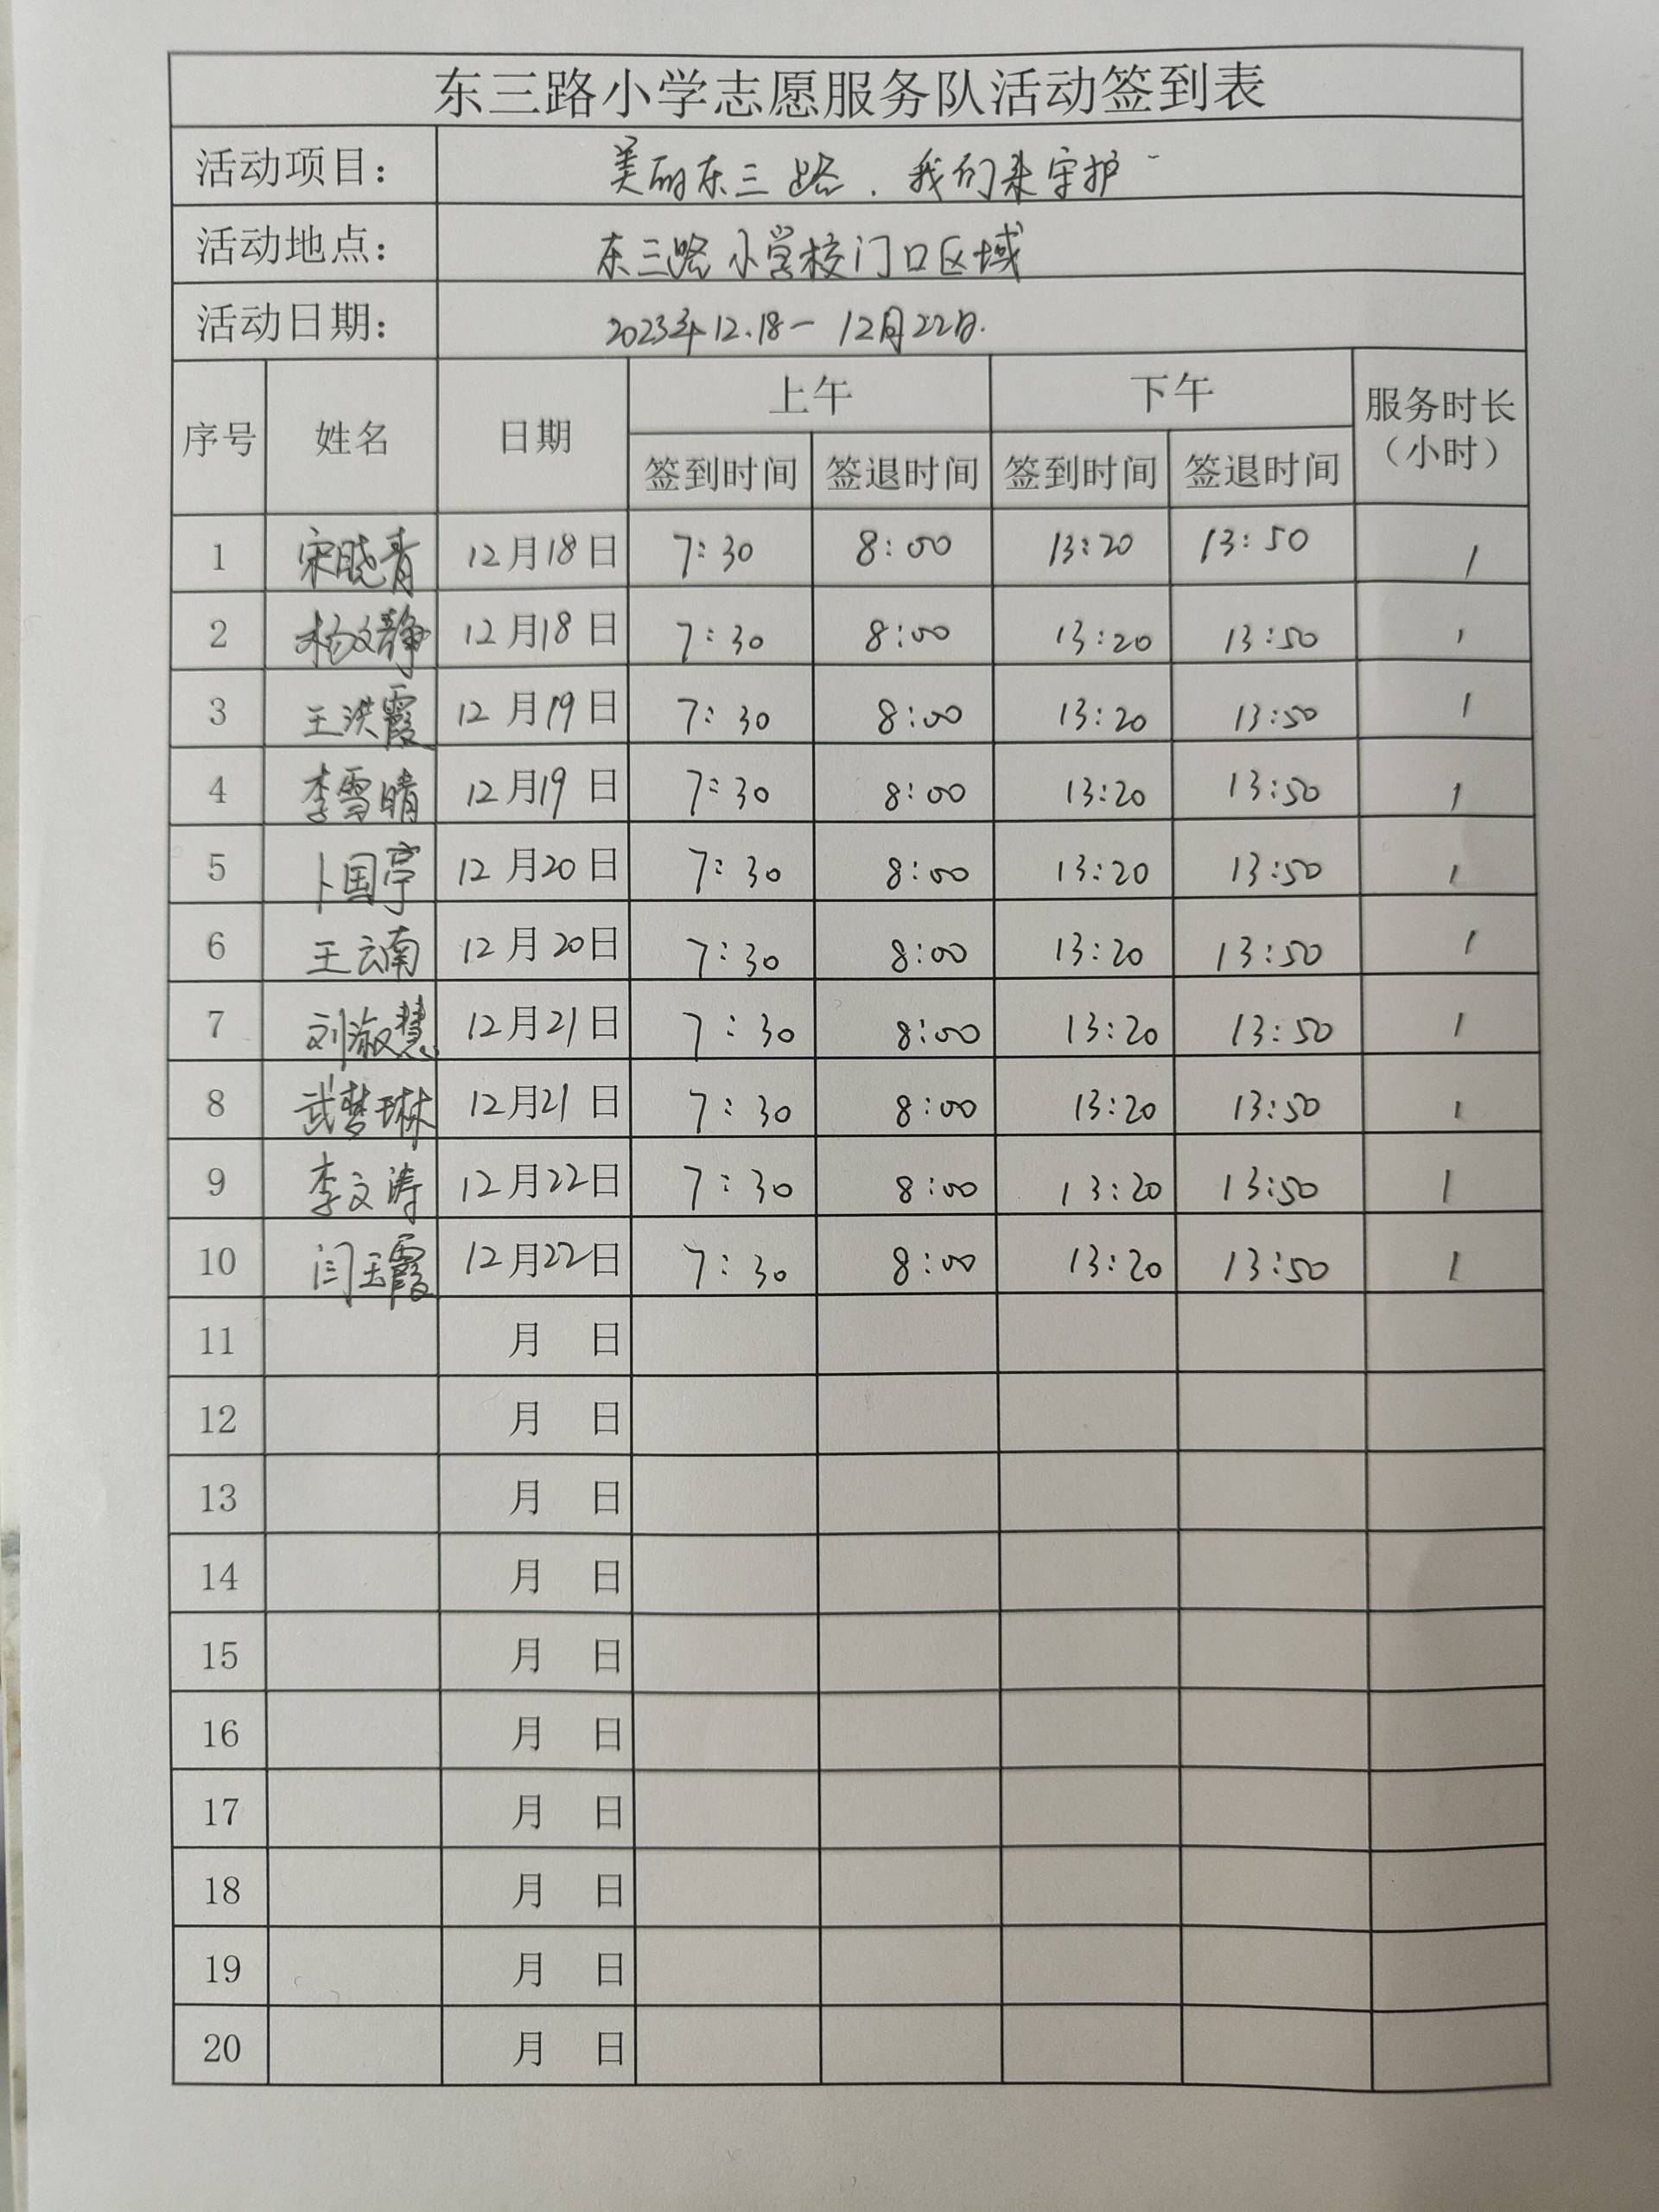 东三路小学志愿服务队活动签到表
活动项目： 美丽东三路.我们来守护
活动地点： 东三路小学校门口区域
活动日期： 2023年12.18一 12月22日.
序号 姓名 日期 上午 下午 服务时长（小时）
签到时间 签退时间 签到时间 签退时间
1 宋晓青 12月18日 7:30 8:00 13:20 13:50 1
2 杨文静 12月18日 7:30 8:00 13:20 13:50 1
3 王洪霞 12月19日 7:30 8:00 13:20 13:50 1
4 李雪晴 12月19日 7:30 8:00 13:20 13:50 1
5 卜国亭 12月20日 7:30 8:00 13:20 13:50 1
6 王云南 12月20日 7:30 8:00 13:20 13:50 1
7 刘淑慧 12月21日 7:30 8:00 13:20 13:50 1
8 武梦琳 12月21日 7:30 8:00 13:20 13:50 1
9 李文涛 12月22日 7:30 8:00 13:20 13:50 1
10 闫玉霞 12月22日 7:30 8:00 13:20 13:50 1
11 月 日
12 月 日
13 月 日
14 月 日
15 月 日
16 月 日
17 月 日
18 月 日
19 月 日
20 月 日